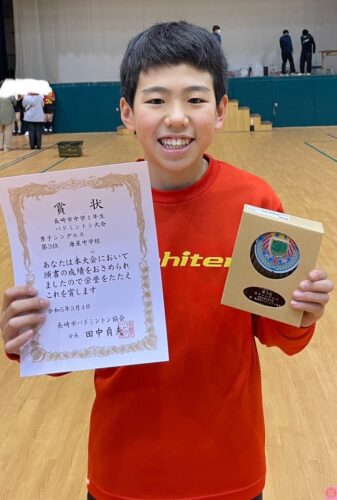 賞状
長崎市中学1年生
バドミントン大会
男子シングルス
第3位 海星中学校
あなたは本大会において
頭書の成績をおさめられ
ましたので栄誉をたたえ
これを賞します
令和5年3月4日
長崎市バドミントン協会
会長 田中貞夫
hiten